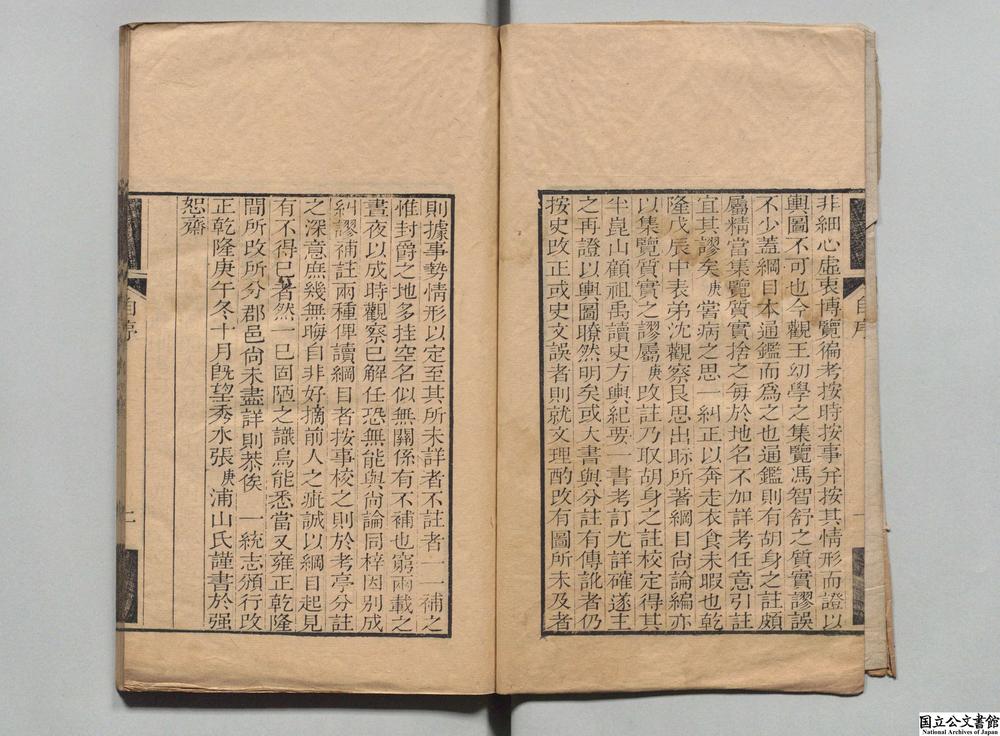 非細心虛衷博覽徧考按時按事幷按其情形而證以
輿圖不可也今觀王幼學之集覽馮智舒之質實謬誤
不少蓋綱目本通鑑而爲之也通鑑則有胡身之註頗
屬精當集覽質實捨之每於地名不加詳考任意引註
宜其謬矣庚嘗病之思一糾正以奔走衣食未暇也乾
隆戊辰中表弟沈觀察艮思出眎所著綱目尙論編亦
以集覽質實之謬屬庚改註乃取胡身之註校定得其
半崑山顧祖禹讀史方輿紀要一書考訂尤詳確遂主
之再證以輿圖暸然明矣或大書與分註有傳訛者仍
按史改正或史文誤者則就文理酌改有圖所未及者
則據事勢情形以定至其所未詳者不註者一一補之
惟封爵之地多挂空名似無關係有不補也窮兩載之
晝夜以成時觀察已解任恐無能與尙論同梓因別成
糾謬補註兩種俾讀綱目者按事校之則於考亭分註
之深意庶幾無晦自非好摘前人之疵誠以綱目起見
有不得已者然一已固陋之識烏能悉當又雍正乾隆
間所改所分郡邑尙未盡詳則恭俟 一統志頒行改
正乾隆庚午冬十月旣望秀水張庚浦山氏謹書於强
恕齋
自序
二
国立公文書館
National Archives of Japan